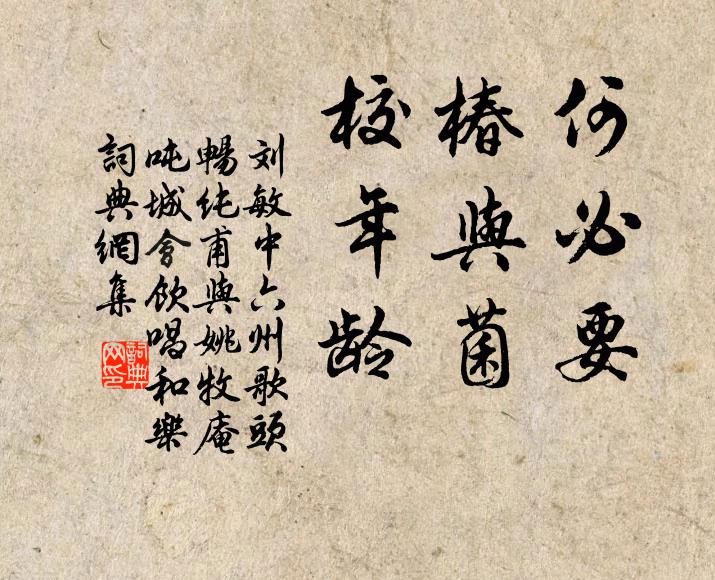 何必要
椿與菌
校年龄
刘敏中六州歌頭
暢纯甫與姚牧庵
吨城會飲唱和樂
詞典網集
詞典
网印